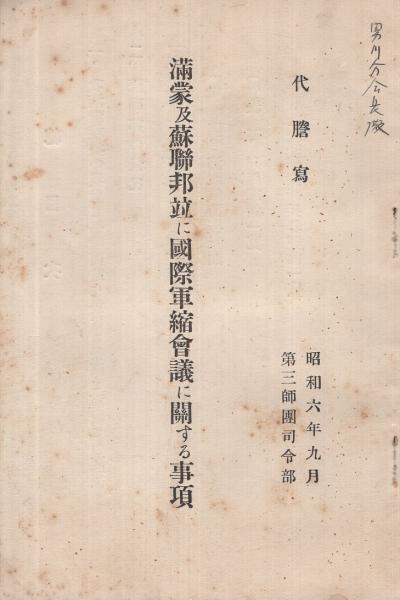 男川分会長殿
代謄寫
昭和六年九月
第三師團司令部
滿蒙及蘇聯邦竝に國際軍縮會議に關する事項